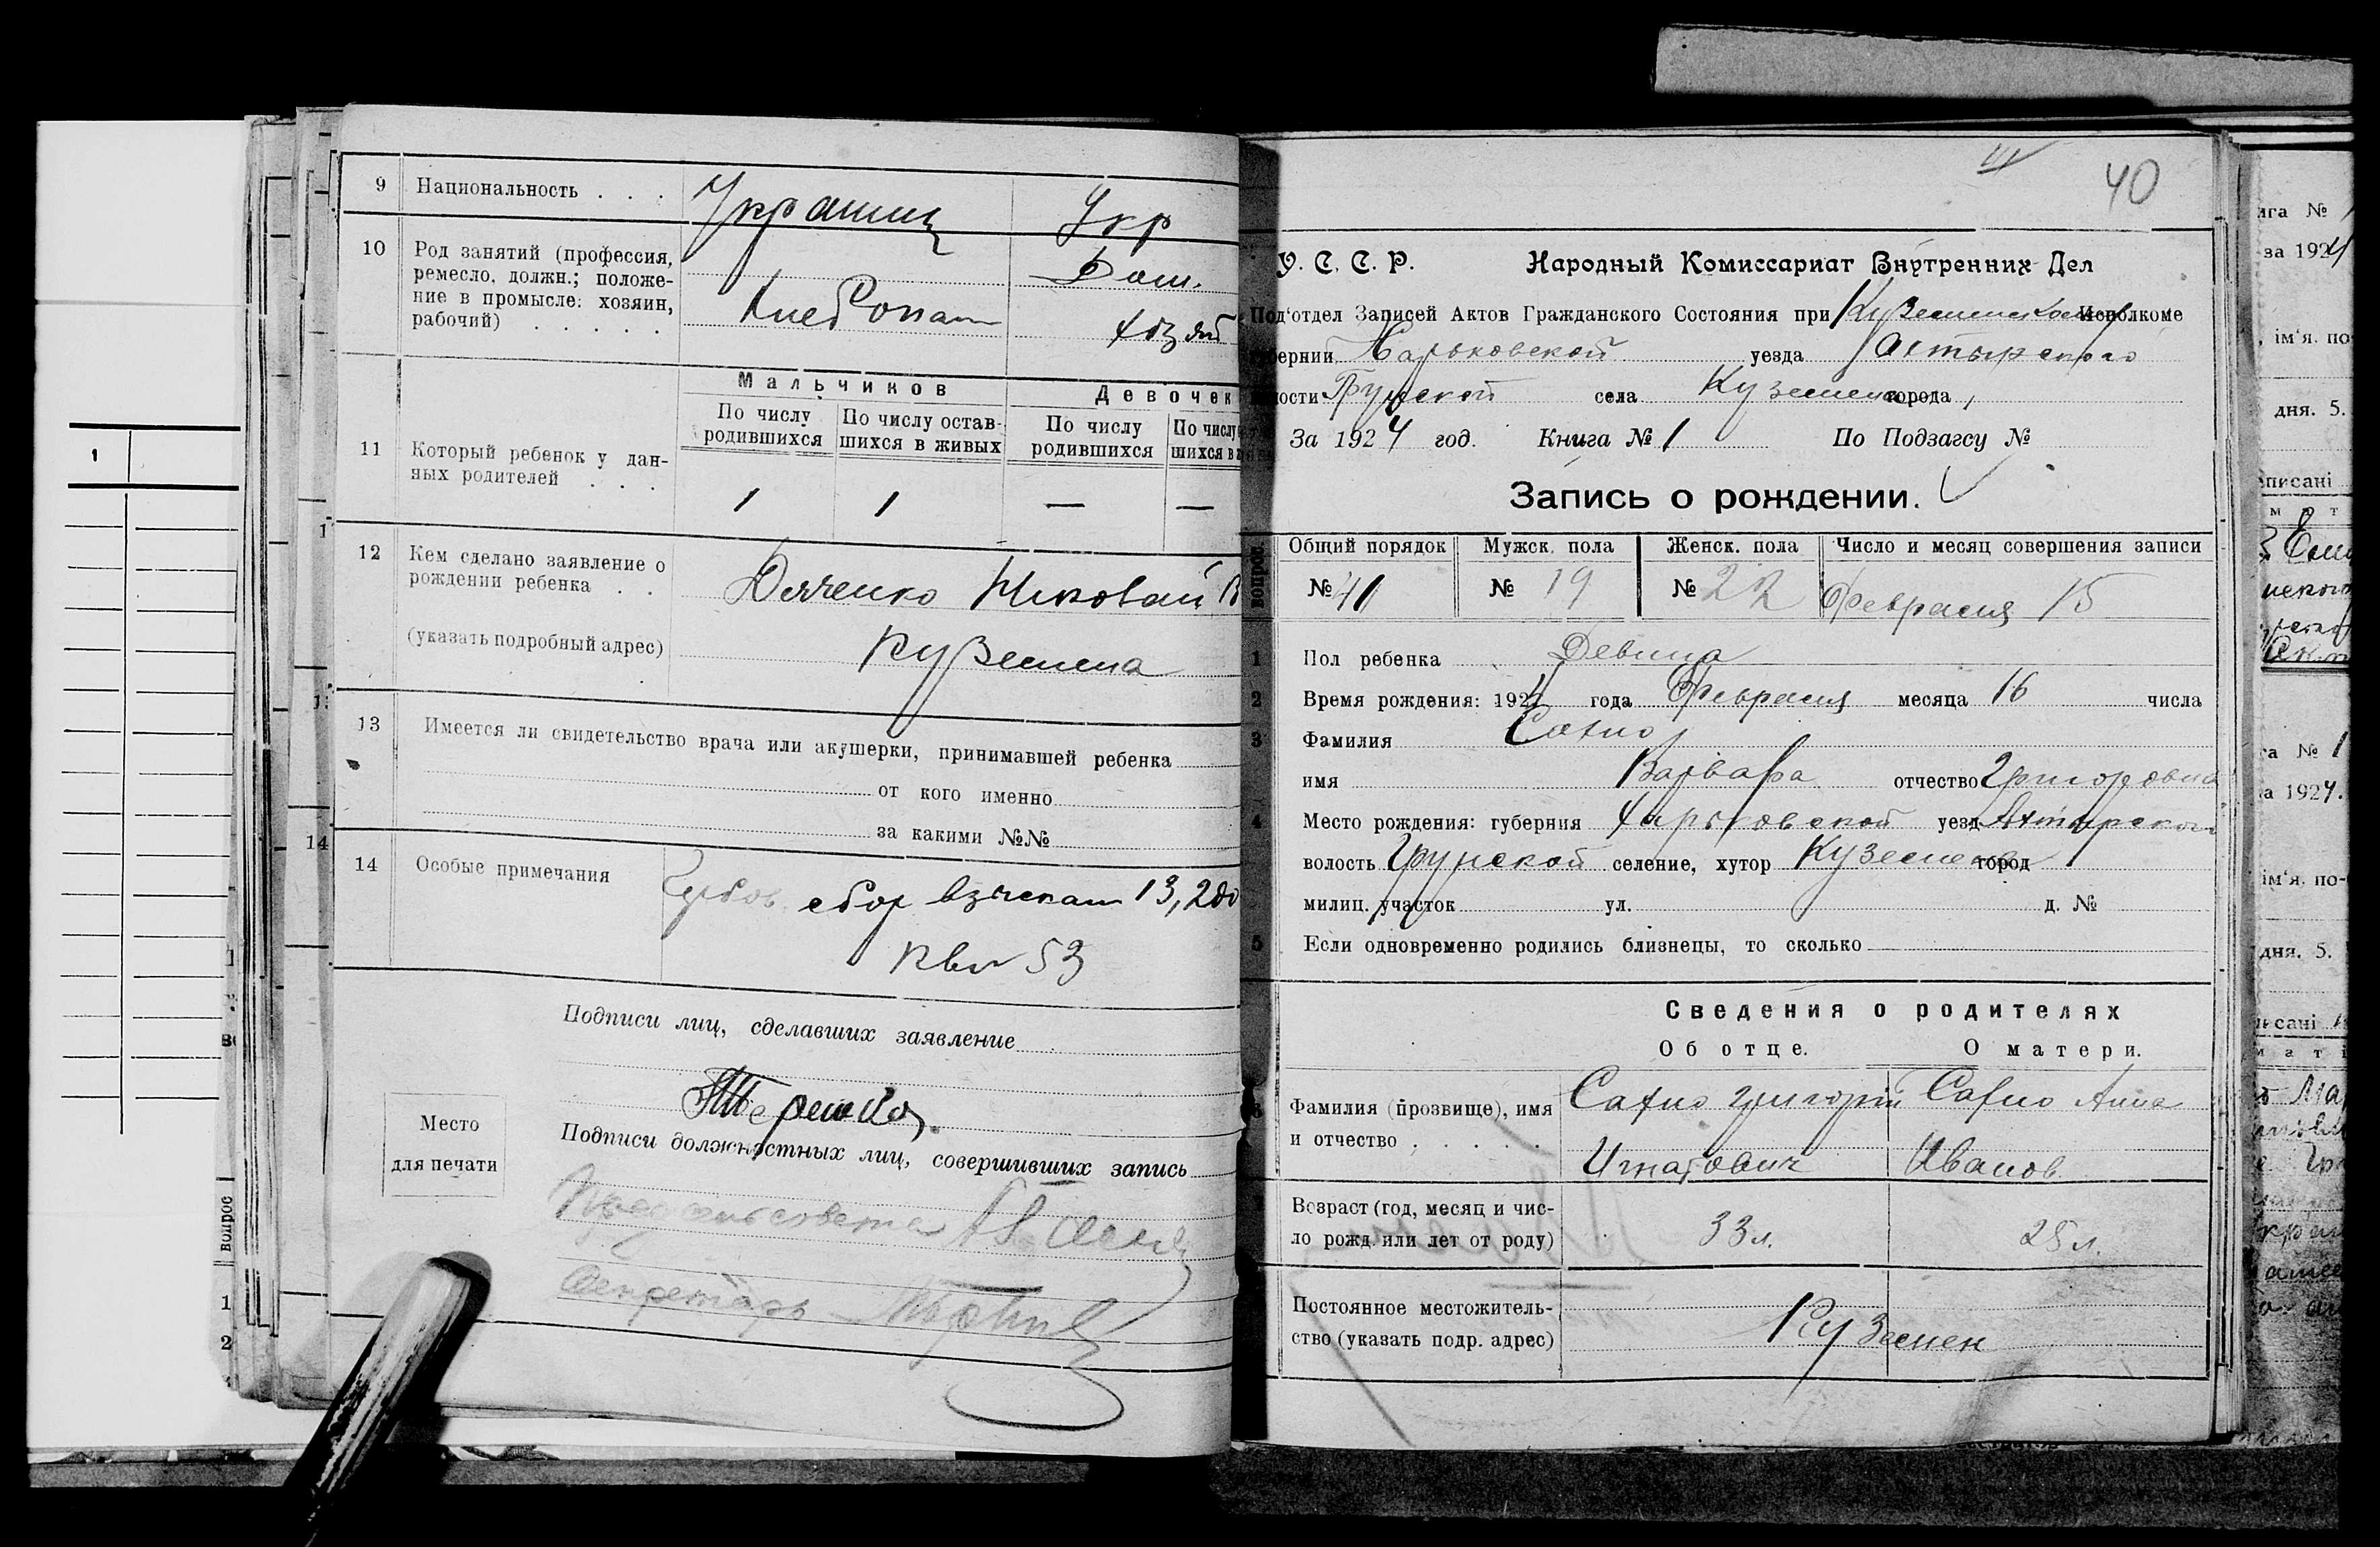 9 Национальность . . . Украинц Укр
10 Род занятий (профессия,
ремесло, должн.; положе-
ние в промысле: хозяин,
рабочий) . . . . .
Хлебопаш
Дом.
хозяй
11 Который ребенок у дан-
ных родителей . . .
Мальчиков Девочек
По числу родившихся
По числу остав-
шихся в живых
По числу родившихся
По числу
шихся в
1 1 — —
12 Кем сделано заявление о
рождении ребенка . .
(указать подробный адрес)
Дяченко Николай
Куземина
13 Имеется ли свидетельство врача или акушерки, принимавшей ребенка
от кого именно
за какими №№
14 Особые примечания
сбор взыскан 13,200
квит 53
Подписи лиц, сделавших заявление
Подписи должностных лиц, совершивших запись
Место
для печати
Секретарь
40
У. С. С. Р. Народный Комиссариат Внутренних Дел
Под'отдел Записей Актов Гражданского Состояния при Куземинском Исполкоме
губернии Харьковской уезда Ахтырского
волости Грунской села Куземен города
За 1924 год. Книга № 1 По Подзагсу №
Запись о рождении.
вопрос
Общий порядок Мужск. пола Женск. пола Число и месяц совершения записи
№ 41 № 19 № 22 Февраля 15
1 Пол ребенка Девица
2 Время рождения: 1924 года Февраля месяца 16 числа
3 Фамилия Сахно
имя Варвара отчество Григоровна
4 Место рождения: губерния Харьковской уезд Ахтырского
волость Грунской селение, хутор Куземен город
милиц. участок ул. д. №
5 Если одновременно родились близнецы, то сколько
Сведения о родителях
Об отце. О матери.
Фамилия (прозвище), имя
и отчество . . . . .
Сахно Григорий
Игнатович
Сахно Анна
Иванов.
Возраст (год, месяц и чис-
ло рожд. или лет от роду)
33 л. 25 л.
Постоянное местожитель-
ство (указать подр. адрес)
Куземен